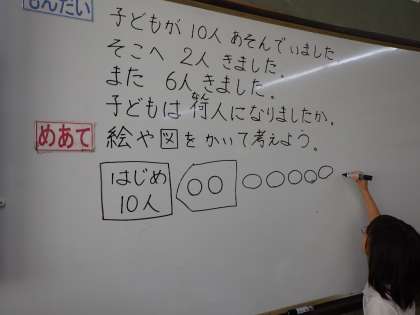 もんだい
子どもが 10人 あそんでいました。
そこへ 2人 きました。
また 6人 きました。
子どもは 荷人になりましたか。
めあて
絵や図をかいて考えよう。
はじめ
10人